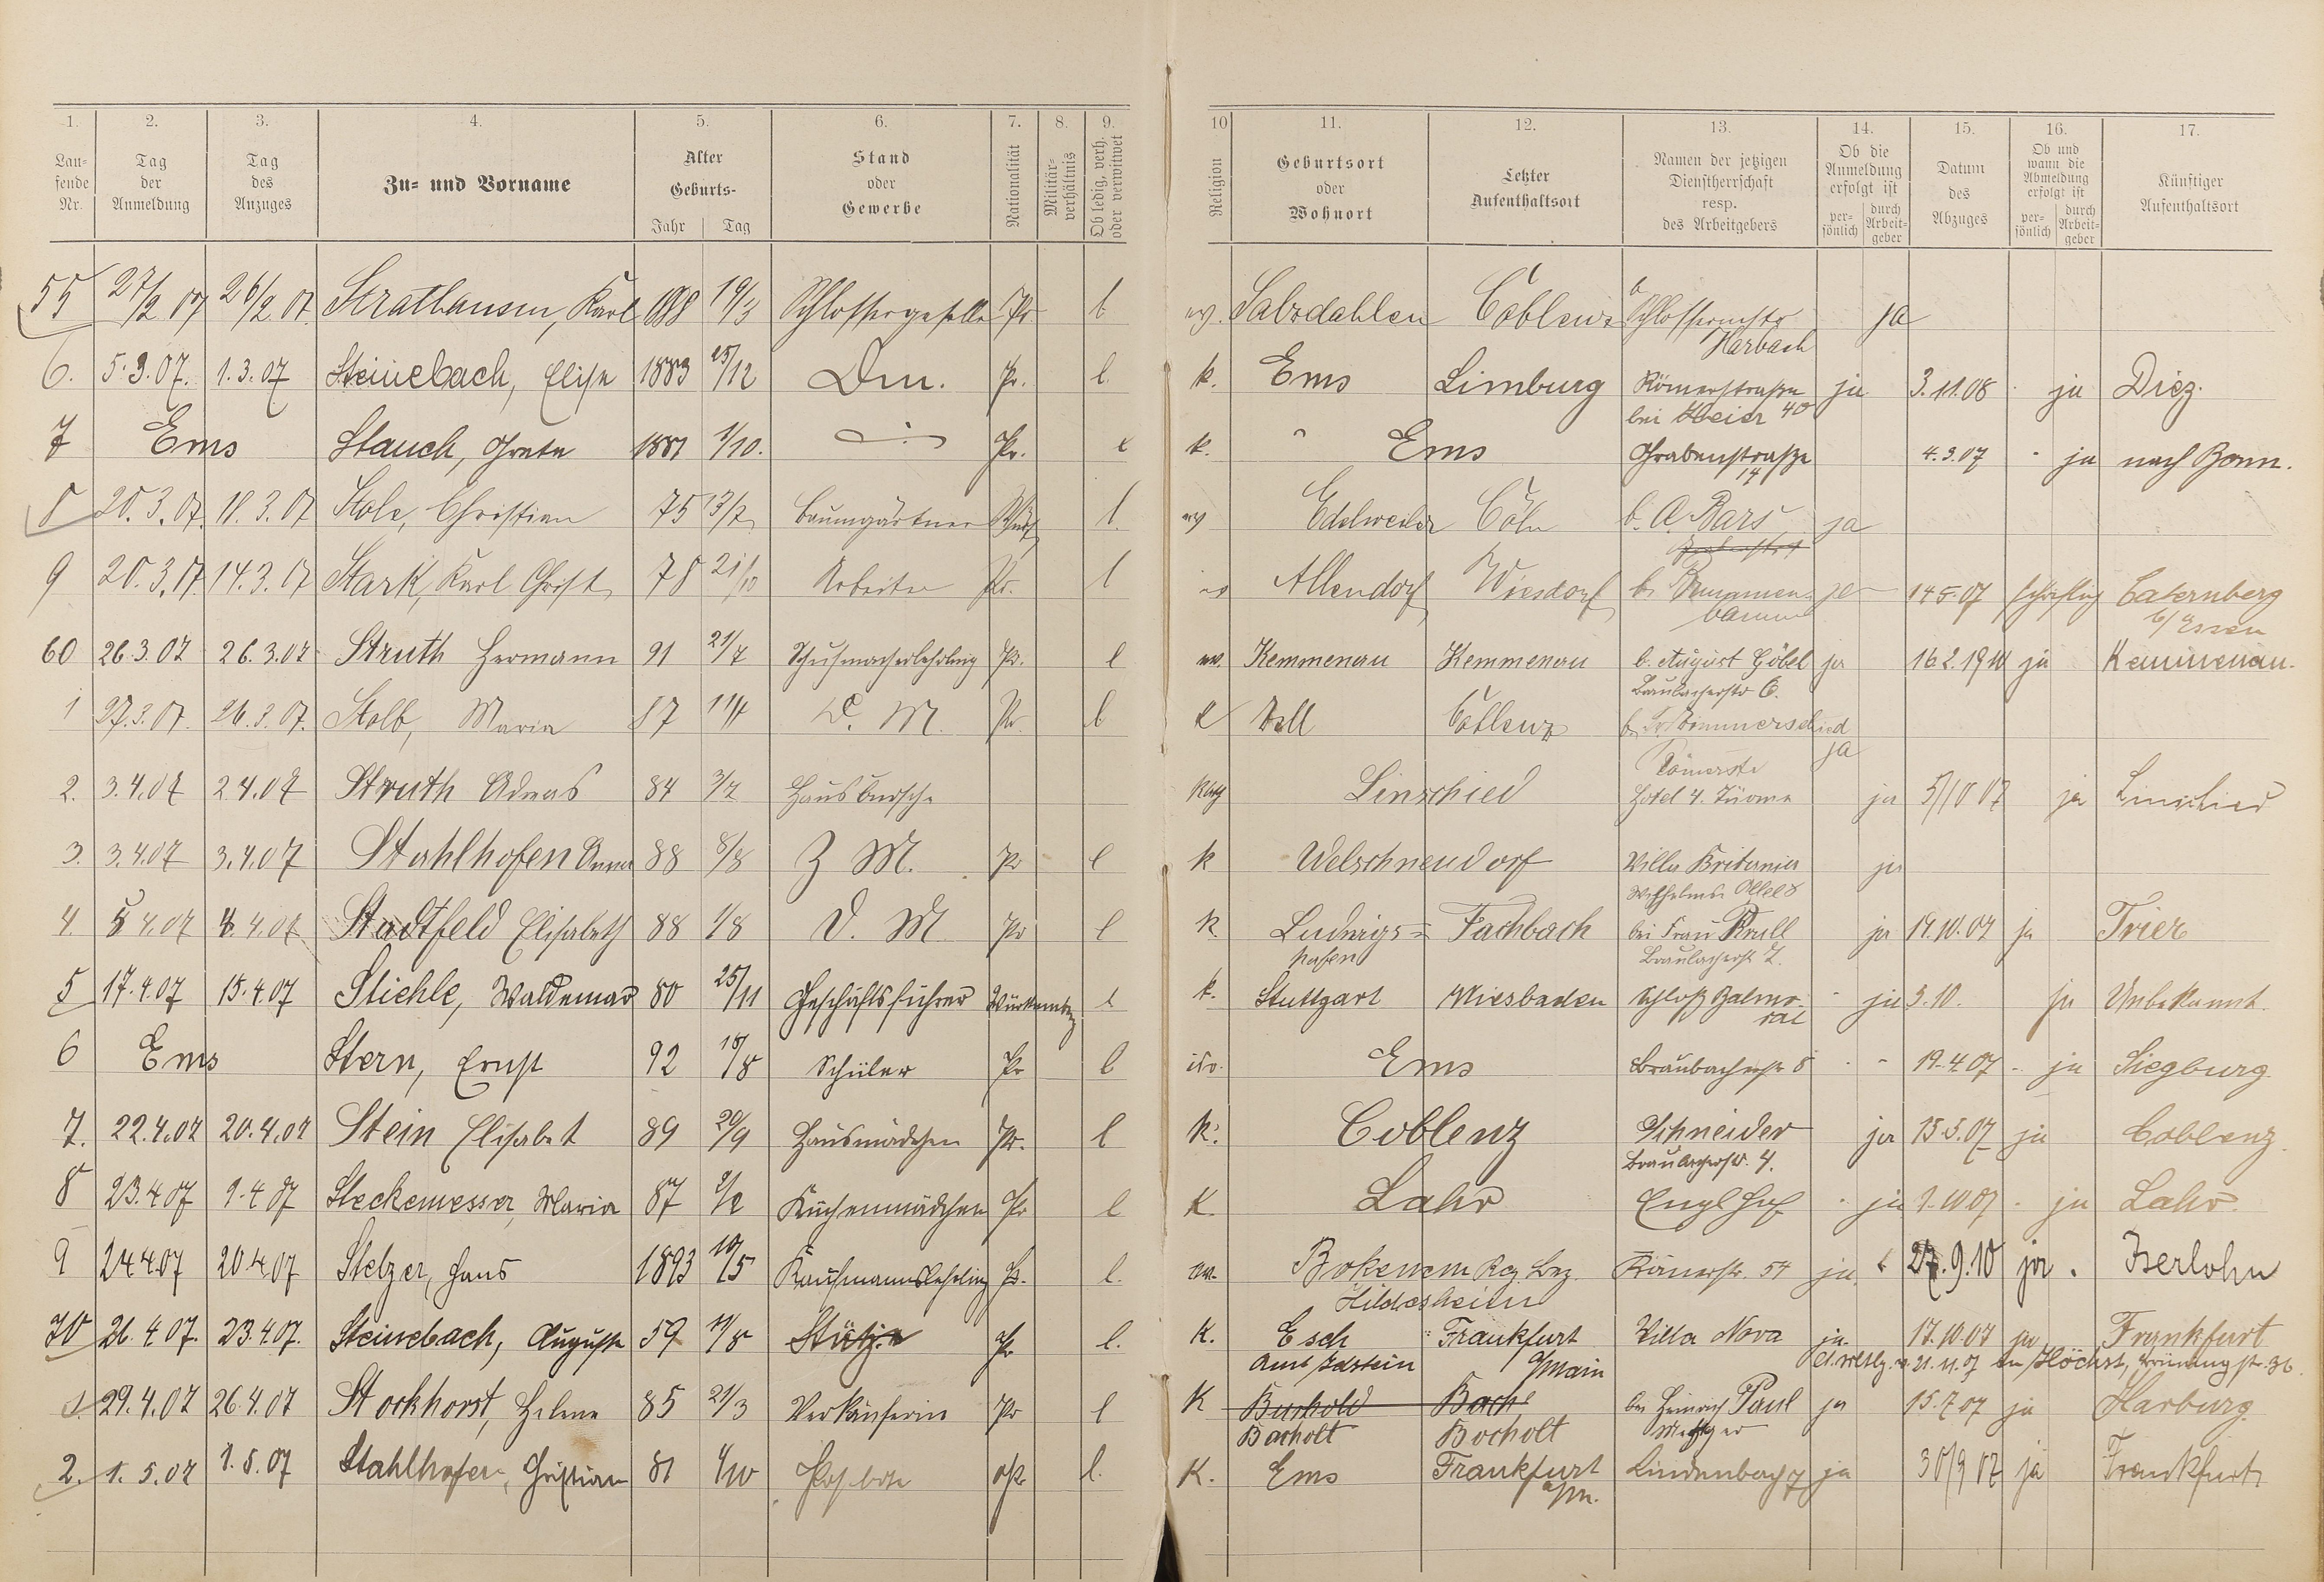 1. 2. 3. 4. 5. 6. 7. 8. 9. 10 11. 12. 13. 14. 15. 16. 17.
Laufende Nr. Tag der Anmeldung Tag des Anzuges Zu- und Vorname Alter Geburts- Jahr Tag Stand oder Gewerbe Nationalität Militärverhältnis Ob ledig, verh. oder verwitwet Religion Geburtsort oder Wohnort Letzter Aufenthaltsort Namen der jetzigen Dienstherrschaft resp. des Arbeitgebers Ob die Anmeldung erfolgt ist persönlich durch Arbeitgeber Datum des Abzuges Ob und wann die Abmeldung erfolgt ist persönlich durch Arbeitgeber Künftiger Aufenthaltsort
55 27/2 07 26/2 07. Strathausen, Karl 19/3 Schlossergeselle Pr. l ev. Salzdahlen Coblenz Schlossermstr ja
Harbach
6. 5.3.07. 1.3.07 Steinebach, Elise 1883 25/12 Dm. Pr. l. k. Ems Limburg Römerstraße ja 3.11.08 ja Diez.
bei Meier 40
7 Ems Stauch, Grete 1881 1/10. Pr. l k. Ems Grabenstraße 4.3.07 ja nach Bonn.
14
8 20.3.07. 18.3.07 Christian 75 13/2 Baumgärtner l. ev Edelweiler Cöln b. A. Bars ja
9 20.3.07. 14.3.07 Stark, Karl Christ. 78 21/10 Arbeiter Pr. l Allendorf Wiesdorf b. 14.5.07 Caternberg
b/Essen
60 26.3.07 26.3.07 Struth Hermann 91 21/7 Schuhmacherlehrling Pr. l ev. Kemmenau Kemmenau b. August Göbel ja 16.2.1910 ja Kemmenau.
Braubacherstr 6.
1 27.3.07. 26.3.07. Stolb, Maria 87 D. M. Pr. l k Coblenz ja
Römerstr
2. 3.4.07 2.4.07 Struth Adam 84 3/7 Hausbursche Linschied Hotel 4. Türme ja 5/10 07 ja Linschied
3. 3.4.07 3.4.07 Stahlhofen Anna 88 8/8 Z M. Pr l k Welschneudorf Villa Britannia ja
Wilhelms Allee 8
4. 5 4.07 4.07 Stadtfeld Elisabeth 88 1/8 D. M Pr l k. Ludwigs= Fachbach bei Frau Krall ja 19.10.07 ja Trier
hafen Braubacherstr 2.
5 17.4.07 15.4.07 Stiehle, Waldemar 80 25/11 Geschäftsführer Württemberg l k. Stuttgart Wiesbaden Schloß Balmo- ja 3.10. ja Unbekannt.
ral
6 Ems Stern, Ernst 92 18/8 Schüler Pr l isr. Ems Braubacherstr 8 19.4.07 ja Siegburg
7. 22.4.07 20.4.07 Stein Elisabet 89 20/9 Hausmädchen Pr. l k. Coblenz Schneider ja 15.5.07 ja Coblenz.
Braubacherstr. 4.
8 23.4.07 9.4.07 Steckemesser, Maria 87 2/2 Küchenmädchen Pr l K. Lahr Engl Hof ja 1.10 07 ja Lahr.
9 24.4.07 20.4.07 Stelzer, Hans 1893 10/5 Kaufmannslehrling Pr. l. ev. Bokenem Reg. Bez. Römerstr. 54 ja 27.9.10 ja. Iserlohn
Hildesheim
70 26.4.07. 23.4.07. Steinebach, Auguste 59 11/8 Stütze Pr l. K. Esch Frankfurt Villa Nova ja. 17.10.07 ja Frankfurt
Amt Idstein a/Main 21.11.07 Höchst,
1. 29.4.07 26.4.07 Stockhorst, Helene 85 21/3 Verkäuferin Pr l K Buchold Bach bei Heinrich Paul ja 15.7.07 ja Harburg
Bocholt Bocholt Metzger
2. 1.5.07 1.5.07 Stahlhofen, Christian 81 1/10 Postbote Pr l. K. Ems Frankfurt Lindenbach 7 ja 30/9 07 ja Frankfurt
a/m.